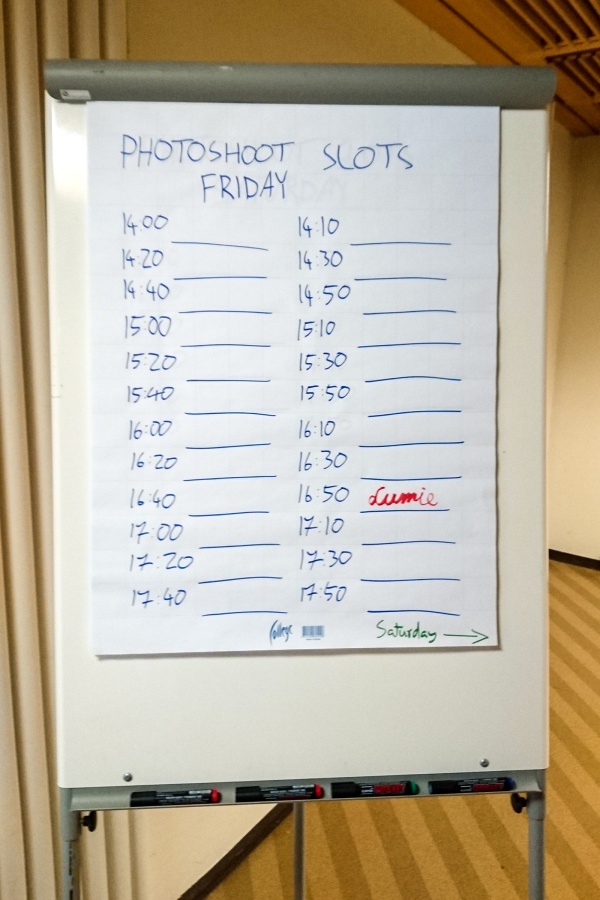 PHOTOSHOOT SLOTS
FRIDAY
14:00 14:10
14:20 14:30
14:40 14:50
15:00 15:10
15:20 15:30
15:40 15:50
16:00 16:10
16:20 16:30
16:40 16:50 Lumie
17:00 17:10
17:20 17:30
17:40 17:50
College
Saturday →